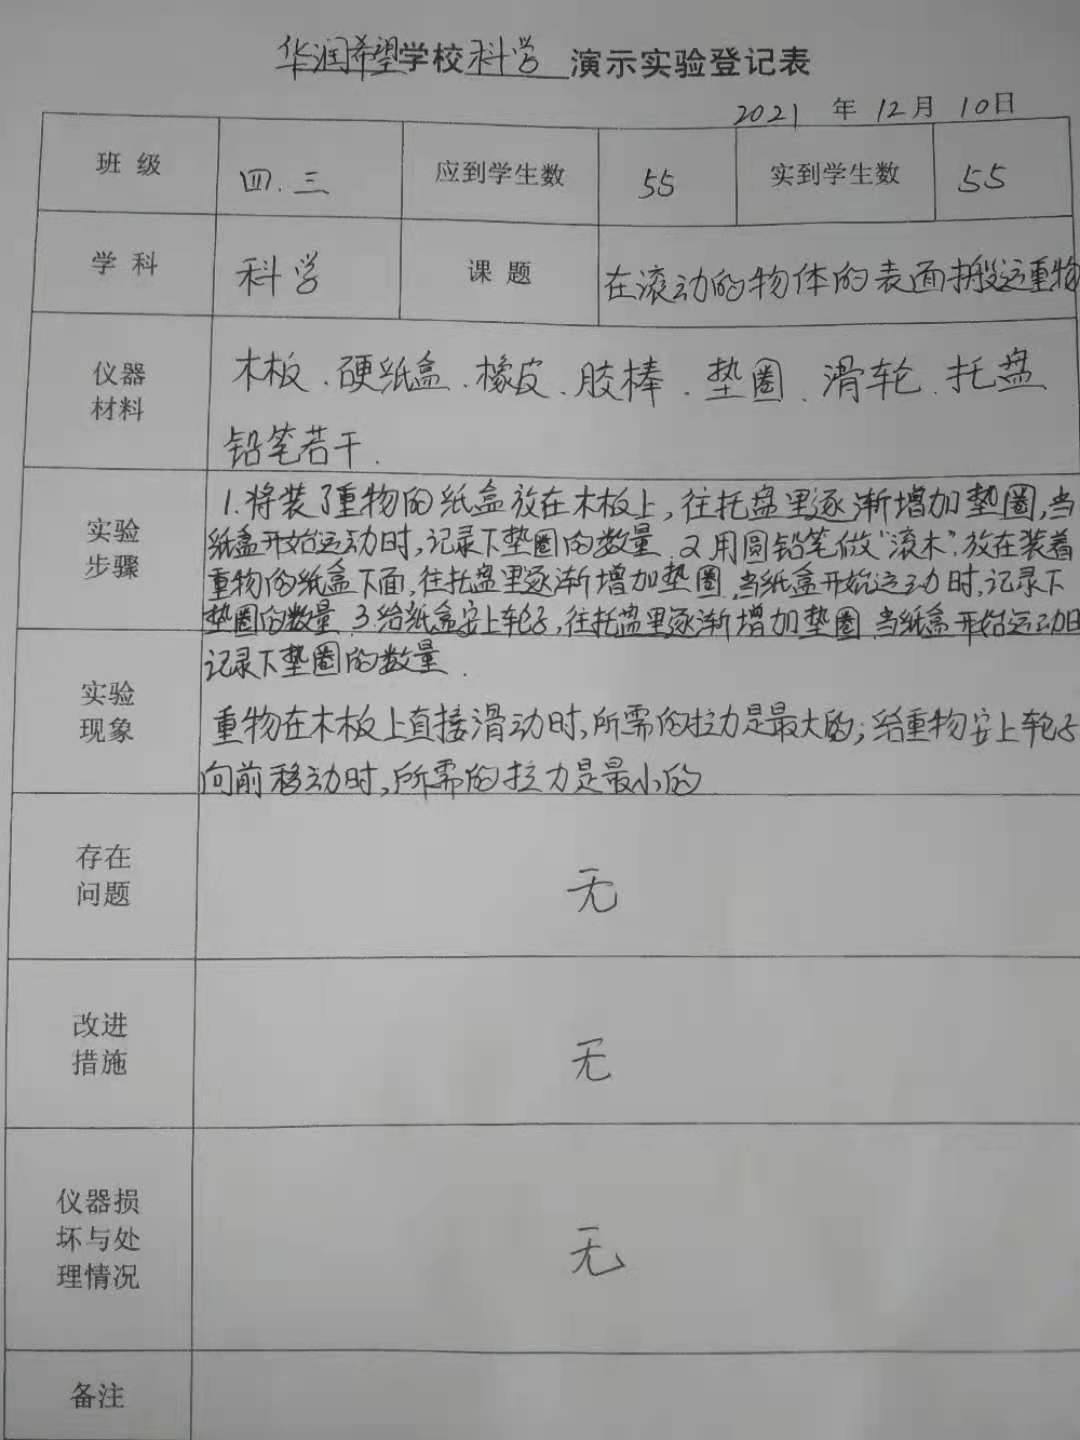 华润希望学校科学 演示实验登记表
2021 年 12月 10日
班 级 四.三 应到学生数 55 实到学生数 55
学 科 科学 课 题 在滚动的物体的表面搬运重物
仪器
材料
木板、硬纸盒、橡皮、胶棒、垫圈、滑轮、托盘
铅笔若干.
实验
步骤
1.将装了重物的纸盒放在木板上,往托盘里逐渐增加垫圈,当
纸盒开始运动时,记录下垫圈的数量.2用圆铅笔做“滚木”,放在装着
重物的纸盒下面,往托盘里逐渐增加垫圈,当纸盒开始运动时,记录下
垫圈的数量.3.给纸盒安上轮子,往托盘里逐渐增加垫圈,当纸盒开始运动时
记录下垫圈的数量.
实验
现象
重物在木板上直接滑动时,所需的拉力是最大的;给重物安上轮子
向前移动时,所需的拉力是最小的
存在
问题
无
改进
措施
无
仪器损
坏与处
理情况
无
备注